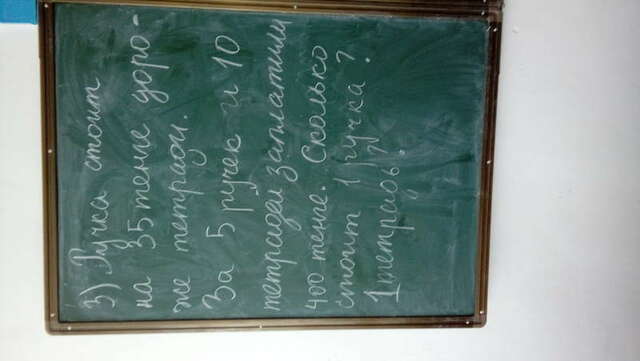 3) Ручка стоит
на 35 тенге доро-
же тетради.
За 5 ручек и 10
тетрадей заплатили
400 тенге. Сколько
стоит 1 ручка?
1 тетрадь?